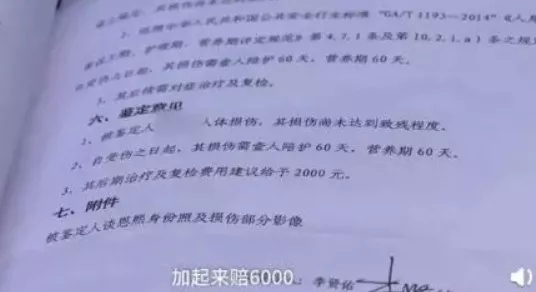 2、依照中华人民共和国公共安全行业标准“GA/T 1193—2014”《人
护理期、营养期评定规范》第4.7.1条及第10.2.1,a)条之规
其损伤需壹人陪护60天,营养期60天。
3、其后续需对症治疗及复检。
六、鉴定意见
1、被鉴定人 人体损伤,其损伤尚未达到致残程度。
2、自受伤之日起,其损伤需壹人陪护60天,营养期60天。
3、其后期治疗及复检费用建议给于2000元。
七、附件
被鉴定人谈恩熙身份照及损伤部分影像
:李贤佑
加起来赔6000